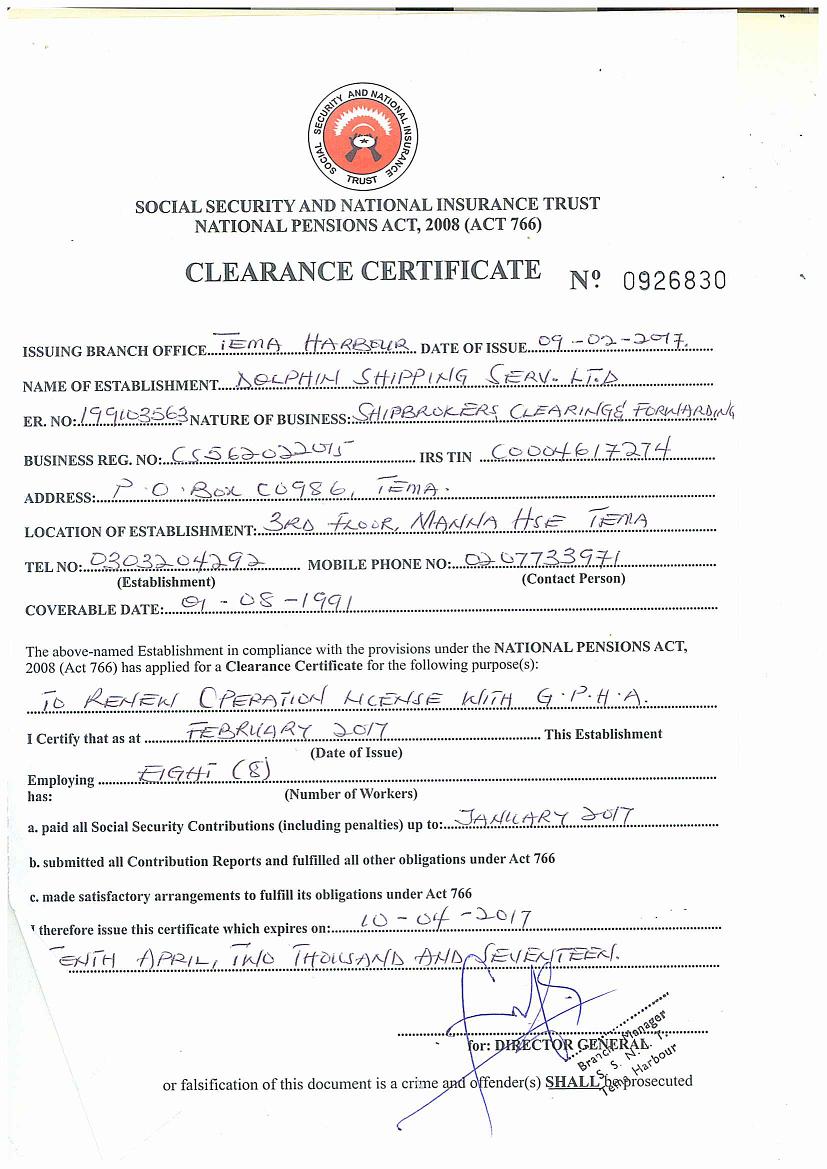 SOCIAL SECURITY AND NATIONAL INSURANCE TRUST
SOCIAL SECURITY AND NATIONAL INSURANCE TRUST
NATIONAL PENSIONS ACT, 2008 (ACT 766)
CLEARANCE CERTIFICATE Nº 0926830
ISSUING BRANCH OFFICE TEMA HARBOUR DATE OF ISSUE 09-02-2017.
NAME OF ESTABLISHMENT DOLPHIN SHIPPING SERV. LT.D
ER. NO: 199103563 NATURE OF BUSINESS: SHIPBROKERS CLEARING & FORWARDING
BUSINESS REG. NO: CS562022015 IRS TIN C0004617274
ADDRESS: P.O. BOX CO986, TEMA.
LOCATION OF ESTABLISHMENT: 3RD FLOOR, MANNA HSE TEMA
TEL NO: 0303204292 MOBILE PHONE NO: 0207733971
(Establishment) (Contact Person)
COVERABLE DATE: 01-08-1991
The above-named Establishment in compliance with the provisions under the NATIONAL PENSIONS ACT,
2008 (Act 766) has applied for a Clearance Certificate for the following purpose(s):
TO RENEW OPERATION LICENSE WITH G.P.H.A.
I Certify that as at FEBRUARY 2017 This Establishment
(Date of Issue)
Employing EIGHT (8)
has: (Number of Workers)
a. paid all Social Security Contributions (including penalties) up to: JANUARY 2017
b. submitted all Contribution Reports and fulfilled all other obligations under Act 766
c. made satisfactory arrangements to fulfill its obligations under Act 766
I therefore issue this certificate which expires on: 10-04-2017
TENTH APRIL, TWO THOUSAND AND SEVENTEEN.
for: DIRECTOR GENERAL
Branch Manager
S. S. N. I. T.
Tema Harbour
or falsification of this document is a crime and offender(s) SHALL be prosecuted